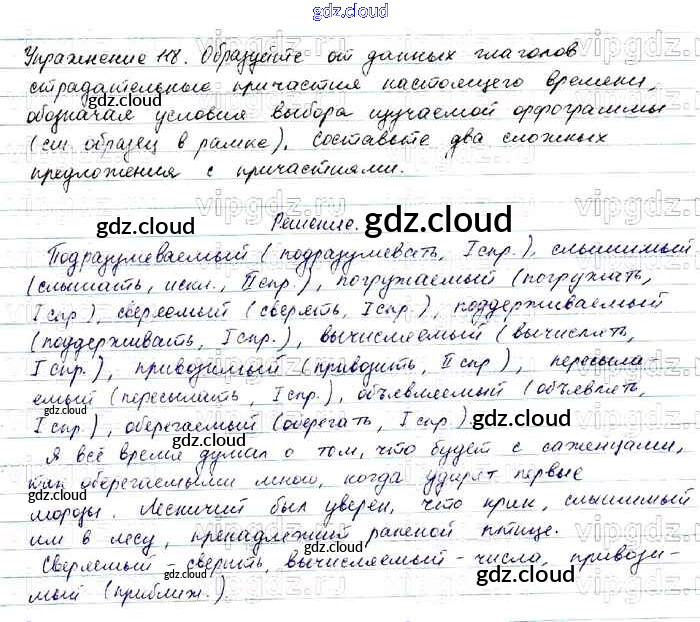 gdz.cloud
Упражнение 118. Образуйте от данных глаголов
страдательные причастия настоящего времени,
обозначая условия выбора изучаемой орфограммы
(см. образец в рамке). Составьте два сложных
предложения с причастиями.
Решение.
Подразумеваемый (подразумевать, I спр.), слышимый
(слышать, искл., II спр.), погружаемый (погружать,
I спр.), сверяемый (сверять, I спр.), поддерживаемый
(поддерживать, I спр.), вычисляемый (вычислять,
I спр.), приводимый (приводить, II спр), пересыла-
емый (пересылать, I спр.), объявляемый (объявлять,
I спр.), оберегаемый (оберегать, I спр.)
Я всё время думал о том, что будет с саженцами,
так оберегаемыми мною, когда ударят первые
морозы. Лесничий был уверен, что крик, слышимый
им в лесу, принадлежит раненой птице.
Сверяемый - сверить, вычисляемый - числа, приводи-
мый (приближ.).